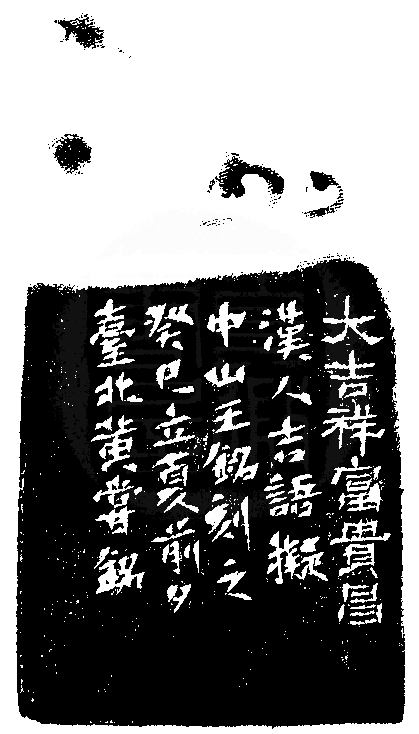 大吉祥富貴昌
漢人吉語擬
中山王銘刻之
癸巳立夏前夕
臺北黃嘗銘